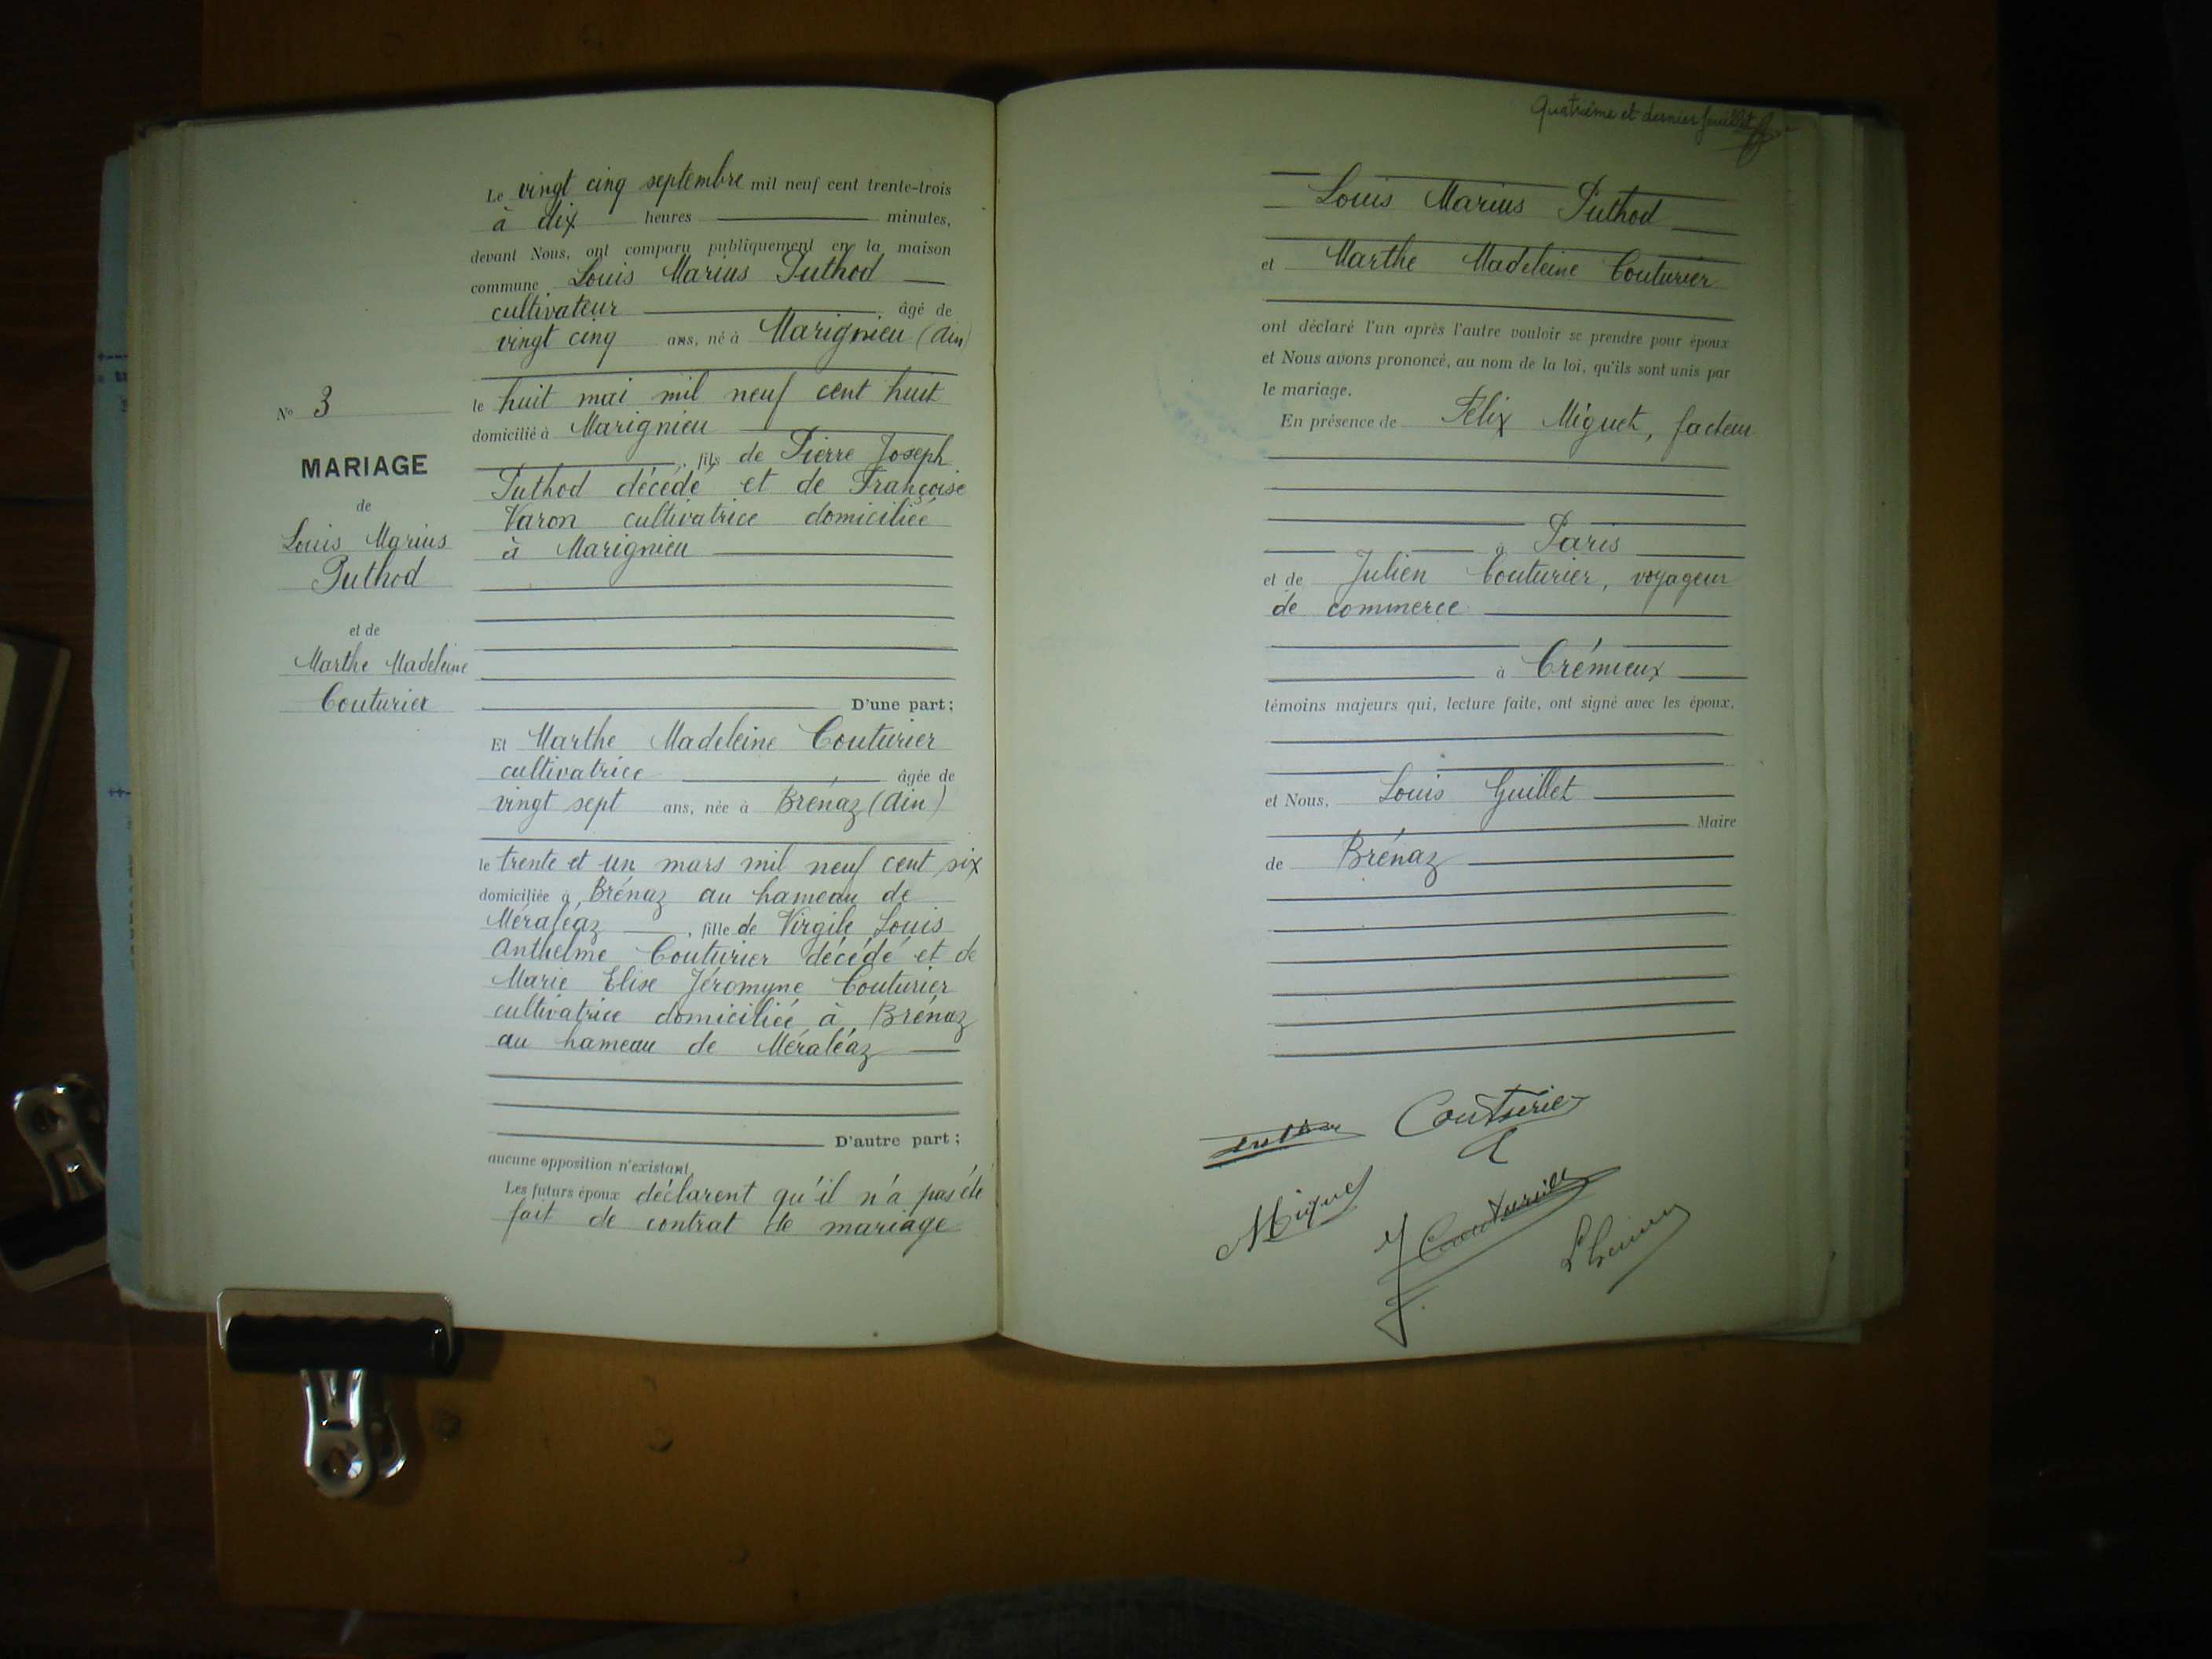 N° 3
MARIAGE
de
Louis Marius
Puthod
et de
Marthe Madeleine
Couturier
Le vingt cinq septembre mil neuf cent trente-trois
à dix heures minutes,
devant Nous, ont comparu publiquement en la maison
commune Louis Marius Puthod
cultivateur âgé de
vingt cinq ans, né à Marignieu (Ain)
le huit mai mil neuf cent huit
domicilié à Marignieu
, fils de Pierre Joseph
Puthod décédé et de Françoise
Varon cultivatrice domiciliée
à Marignieu
D'une part;
Et Marthe Madeleine Couturier
cultivatrice âgée de
vingt sept ans, née à Brénaz (Ain)
le trente et un mars mil neuf cent six
domiciliée à Brénaz au hameau de
Méraléaz , fille de Virgile Louis
Anthelme Couturier décédé et de
Marie Elise Jéromyne Couturier
cultivatrice domiciliée à Brénaz
au hameau de Méraléaz
D'autre part;
aucune opposition n'existant
Les futurs époux déclarent qu'il n'a pas été
fait de contrat de mariage
Quatrième et dernier feuillet
Louis Marius Puthod
et Marthe Madeleine Couturier
ont déclaré l'un après l'autre vouloir se prendre pour époux
et Nous avons prononcé, au nom de la loi, qu'ils sont unis par
le mariage.
En présence de Félix Miguet, facteur
à Paris
et de Julien Couturier, voyageur
de commerce
à Crémieux
témoins majeurs qui, lecture faite, ont signé avec les époux,
et Nous, Louis Guillet
Maire
de Brénaz
Couturier
Miguet
J Couturier